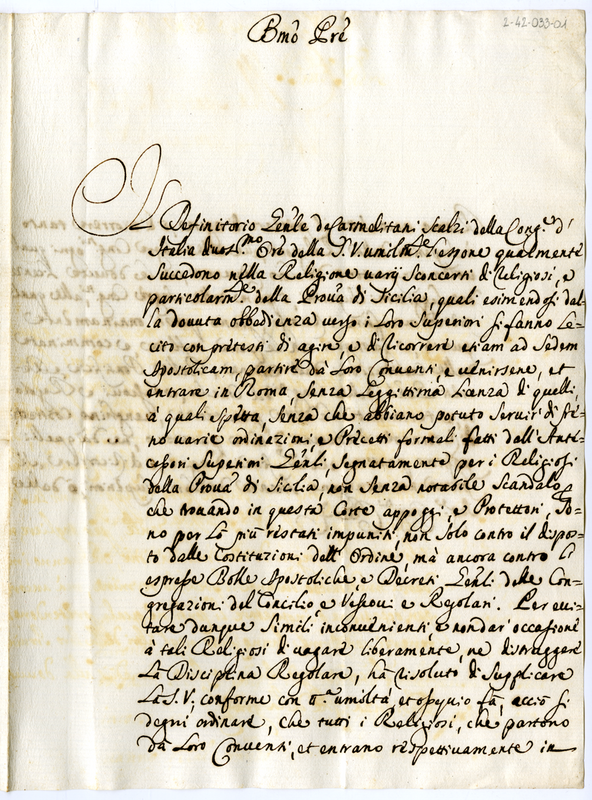 2-42-033-01
Bmõ Prẽ
Il Definitorio Gen'le de Carmelitani Scalzi della Cong.e d'
Italia divot.mo Ore della S. V. umilm.te l'espone qualmente
succedono nella Religione varij sconcerti di Religiosi, e
particolarm.te della Prov.a di Sicilia, quali esimendosi dal-
la dovuta obbedienza verso i Loro Superiori si fanno Le=
cito con pretesti di agire, e di ricorrere etiam ad Sedem
Apostolicam, partire da Loro Conventi, e venirsene, et
entrare in Roma, senza Leggittima Licenza di quelli,
à quali spetta, senza che abbiano potuto servir di fre=
no varie ordinazioni, e Precetti formali fatti dall'Ante=
cessori Superiori Gen'li, segnatamente per i Religiosi
della Prov.a di Sicilia, non senza notabile scandalo,
che trovando in questa Corte appoggi, e Protettori, So=
no per Lo più restati impuniti, non solo contro il dispos=
to dalle Costituzioni dell'Ordine, mà ancora contro l'
espresse Bolle Apostoliche, e Decreti Gen'li delle Con=
gregazioni del Concilio, e Vescovi e Regolari. Per evi=
tare dunque simili inconvenienti, e non dar' occasione
à tali Religiosi di vagare liberamente, ne distruggere
La Disciplina Regolare, hà risoluto di supplicare
La S. V., conforme con umiltà, et ossequio fà, acciò si
degni ordinare, che tutti i Religiosi, che partono
da Loro Conventi, et entrano respettivamente in